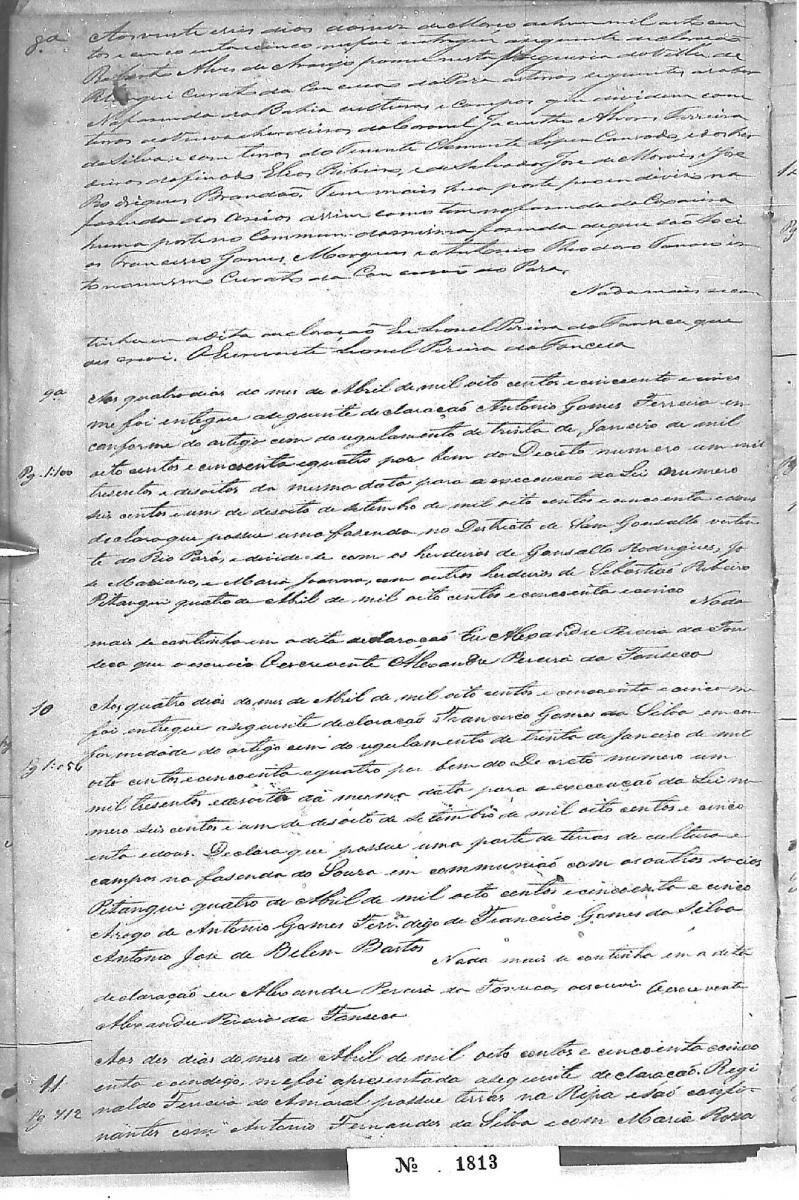 8.a Aos vinte e seis dias do mez de Março de hum mil oito cen
tos e cincoenta e cinco me foi entregue a seguinte declaração
Alves de Araujo possue nesta Freguesia da Villa de
Pitangui Curato da Conceicão do Pará as terras seguintes a saber
Na fasenda da Bahia culturas e campos que dividem com
terras da Viuva e herdeiros do Coronel Jacintho Alvares Ferreira
da Silva e com terras do Tenente Clemente Lopes Cançado, e dos her
deiros do finado Elias Ribeiro, e de Salvador José de Morais, e José
Rodrigues Brandão. Tem mais sua parte pro endivizo na
fasenda dos assim como tem na fasenda da
huma parte no Commum da mesma fasenda de que são Soci
os Francisco Gomes Marques e Antonio Theodoro
to no mesmo Curato da Conceicão do Pará.
Nada mais se con
tinha em a dita declaração Eu Lionel Pereira da Fonseca que
escrevi. O Escrevente Lionel Pereira da Fonceca
9a Aos quatro dias do mes de Abril de mil oito centos e cincoenta e cinco
me foi entregue a seguinte declaração Antonio Gomes Ferreira em
conforme do artigo cem do regulamento de trinta de Janeiro de mil
Pg. 1:100 oito centos e cincoenta e quatro por bem do Decreto numero um mil
tresentos e desoito da mesma data para a execucao da Lei numero
seis centos e um de desoito de Setembro de mil oito centos e cincoenta e dous
declara que possue uma fasenda no Destricto de Sam Gonsallo verten
te do Rio Pará, e divide se com os herdeiros de Gonsallo Rodrigues, Jo
e Mariano, e Maria Joanna, com outros herdeiros de Sebastiaõ Ribeiro
Pitangui quatro de Abril de mil oito centos e cincoenta e cinco Nada
mais se continha em a dita declaraçaõ Eu Alexandre Pereira da Fon
seca que o escrevi O escrevente Alexandre Pereira da Fonseca
10 Aos quatro dias do mes de Abril de mil oito centos e cincoenta e cinco me
foi entregue a seguinte declaraçaõ Francisco Gomes da Silva em con
formidade do artigo cem do regulamento de trinta de Janeiro de mil
Pg 1:056 oito centos e cincoenta e quatro por bem do Decreto numero um
mil tresentos e desoito da mesma data para a execuçaõ da Lei nu
mero seis centos e um de desoito de Setembro de mil oito centos e cinco
enta e dous. Declara que possue uma parte de terras de cultura e
campos na fasenda do Souza em communiaõ com os outros socios
Pitangui quatro de Abril de mil oito centos e cincoenta e cinco
Arogo de Antonio Gomes Ferr. digo de Francisco Gomes da Silva
Antonio José de Belem Bastos Nada mais se continha em a dita
declaração eu Alexandre Pereira da Fonseca, o escrevi O escrevente
Alexandre Pereira da Fonseca
11 Aos des dias do mes de Abril de mil oito centos e cincoenta cinco
enta e digo, me foi apresentada a seguinte declaracaõ. Regi
Pg 712 naldo Ferreira do Amaral possue terras na Ripa e saõ confi
nantes com Antonio Fernandes da Silva e com Maria Rosa
№ 1813